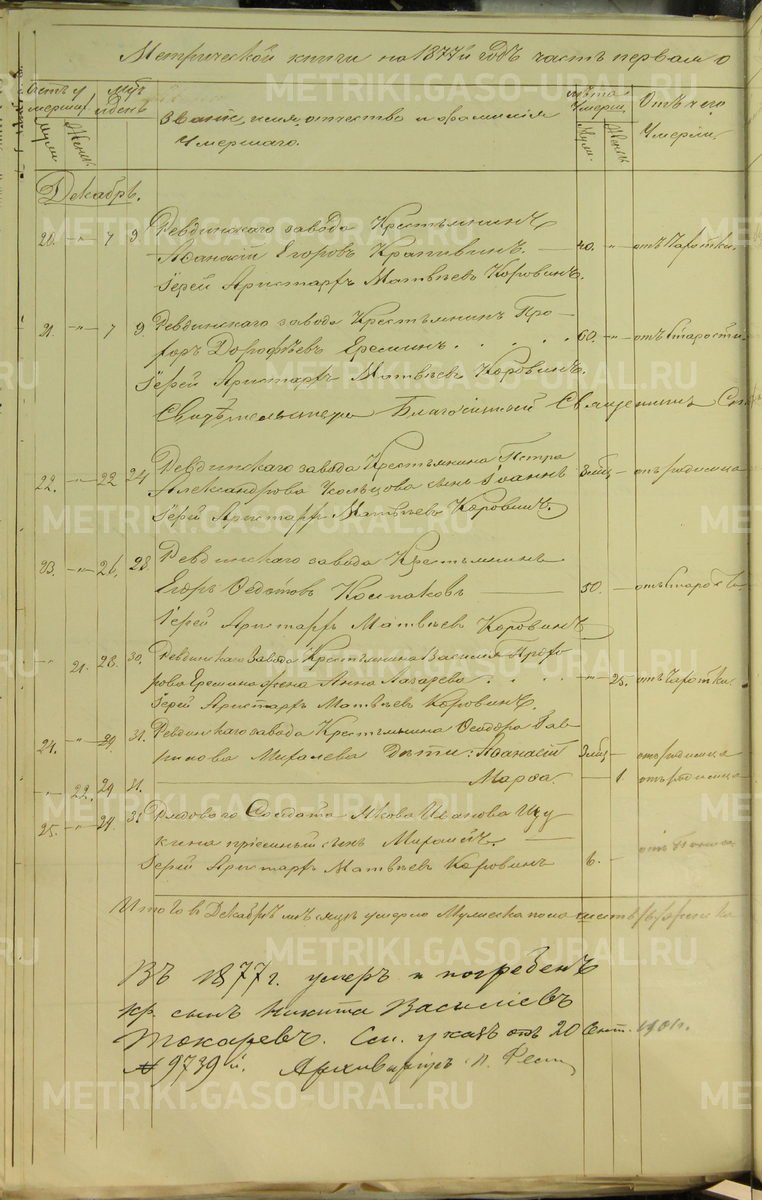 Метрической книги на 1877й годъ часть первая о
Счетъ умершихъ
Муж. Женск.
День
Званіе, имя, отчество и фамилія
Умершаго.
Лѣта умерш.
Муж. Женск.
Отъ чего
Умерли.
Декабрь.
20. -"- 7 9. Ревдинскаго завода Крестьянинъ
Афанасій Егоровъ Крапивинъ. — 40. " отъ Чахотки.
Іерей Аристархъ Матвѣевъ Коровинъ.
21. -"- 7 9. Ревдинскаго завода Крестьянинъ Про-
форъ Дорофѣевъ Ереминъ . . . . . 60. -"- отъ Старости
Іерей Аристархъ Матвѣевъ Коровинъ.
Свидѣтельствую Благочинный Священникъ
22. -"- 22 24 Ревдинскаго завода Крестьянина Петра
Александрова Кольцова сынъ Іоаннъ 3 мѣс — отъ родимца
Іерей Аристархъ Матвѣевъ Коровинъ.
23. -"- 26. 28. Ревдинскаго завода Крестьянинъ
Егоръ Федотовъ Колпаковъ —— 50. — отъ Старости
Іерей Аристархъ Матвѣевъ Коровинъ
-"- 21. 28. 30. Ревдинскаго Завода Крестьянина Василія Профо-
рова Еремина жена Анна Лазарева . . . . -"- 25. отъ Чахотки.
Іерей Аристархъ Матвѣевъ Коровинъ.
24. -"- 29. 31. Ревдинскаго завода Крестьянина Исидора Гав-
рилова Мухалева Дѣти: Афанасій 3 мѣс — отъ родимца
-"- 22. 29 31. Марфа. — 1 отъ родимца
25. -"- 29. 31 Рядового Солдата Якова Иванова
пріемный сынъ
Іерей Аристархъ Матвѣевъ Коровинъ 6. —
Итого въ Декабрѣ мѣсяцѣ умерло Мужеска пола шесть /6/ женска
Въ 1877 г. умеръ и погребенъ
кр. сынъ Никита Василіевъ
Токаревъ. См. указъ отъ 20 Сент. 1901 г.
№ 9739й. Архиваріусъ П.
METRIKI.GASO-URAL.RU